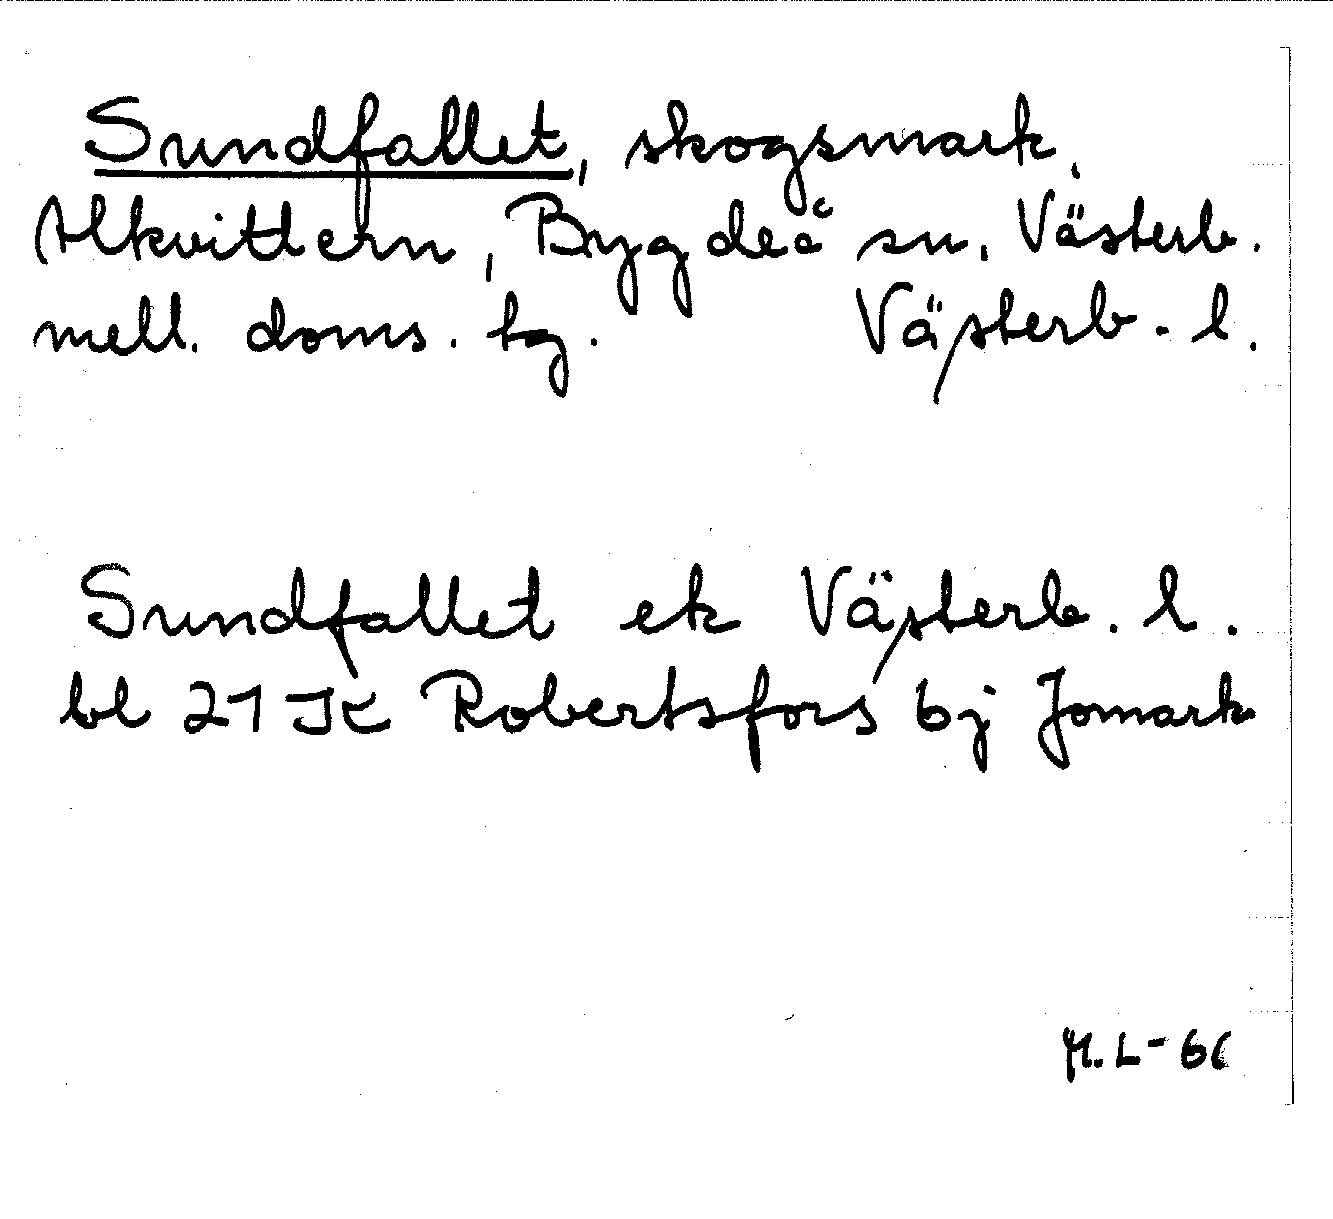 Sundfallet, skogsmark,
Alkvittern, Bygdeå sn, Västerb.
mell. doms. tg. Västerb. l.
Sundfallet ek Västerb. l.
bl 21 JK Robertsfors 6j Jomark
M.L-66